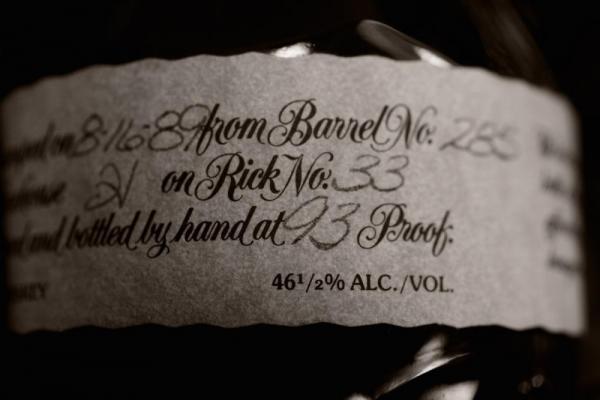 on 8-16-89 from Barrel No. 285
on Rick No. 33
and bottled by hand at 93 Proof.
46½% ALC./VOL.